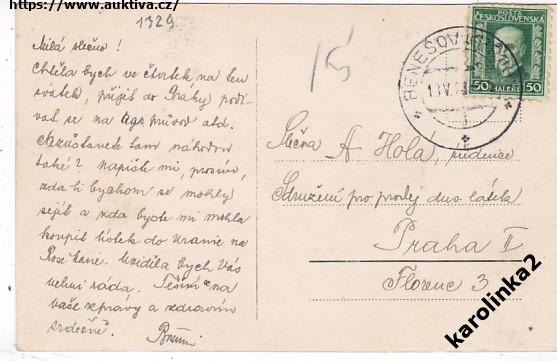 https://www.auktiva.cz/
1329
Milá slečno!
Chtěla bych ve čtvrtek na ten
svátek, přijít do Prahy podí-
vat se na legs. průvod atd.
Nezůstanete tam náhodou
také? napište mi, prosím,
zda-li bychom se mohly
sejít a zda byste mi mohla
koupit lístek do Uranie na
Rose Marie. Uviděla bych Vás
velmi ráda. Těším se na
vaše zprávy a zdravím
srdečně.
POŠTA
ČESKOSLOVENSKÁ
50 HALÉŘŮ 50
BENEŠOV
Slečna A. Holá, úřednice
Sdružení pro prodej dus. látek
Praha II
Florenc 3
karolinka2